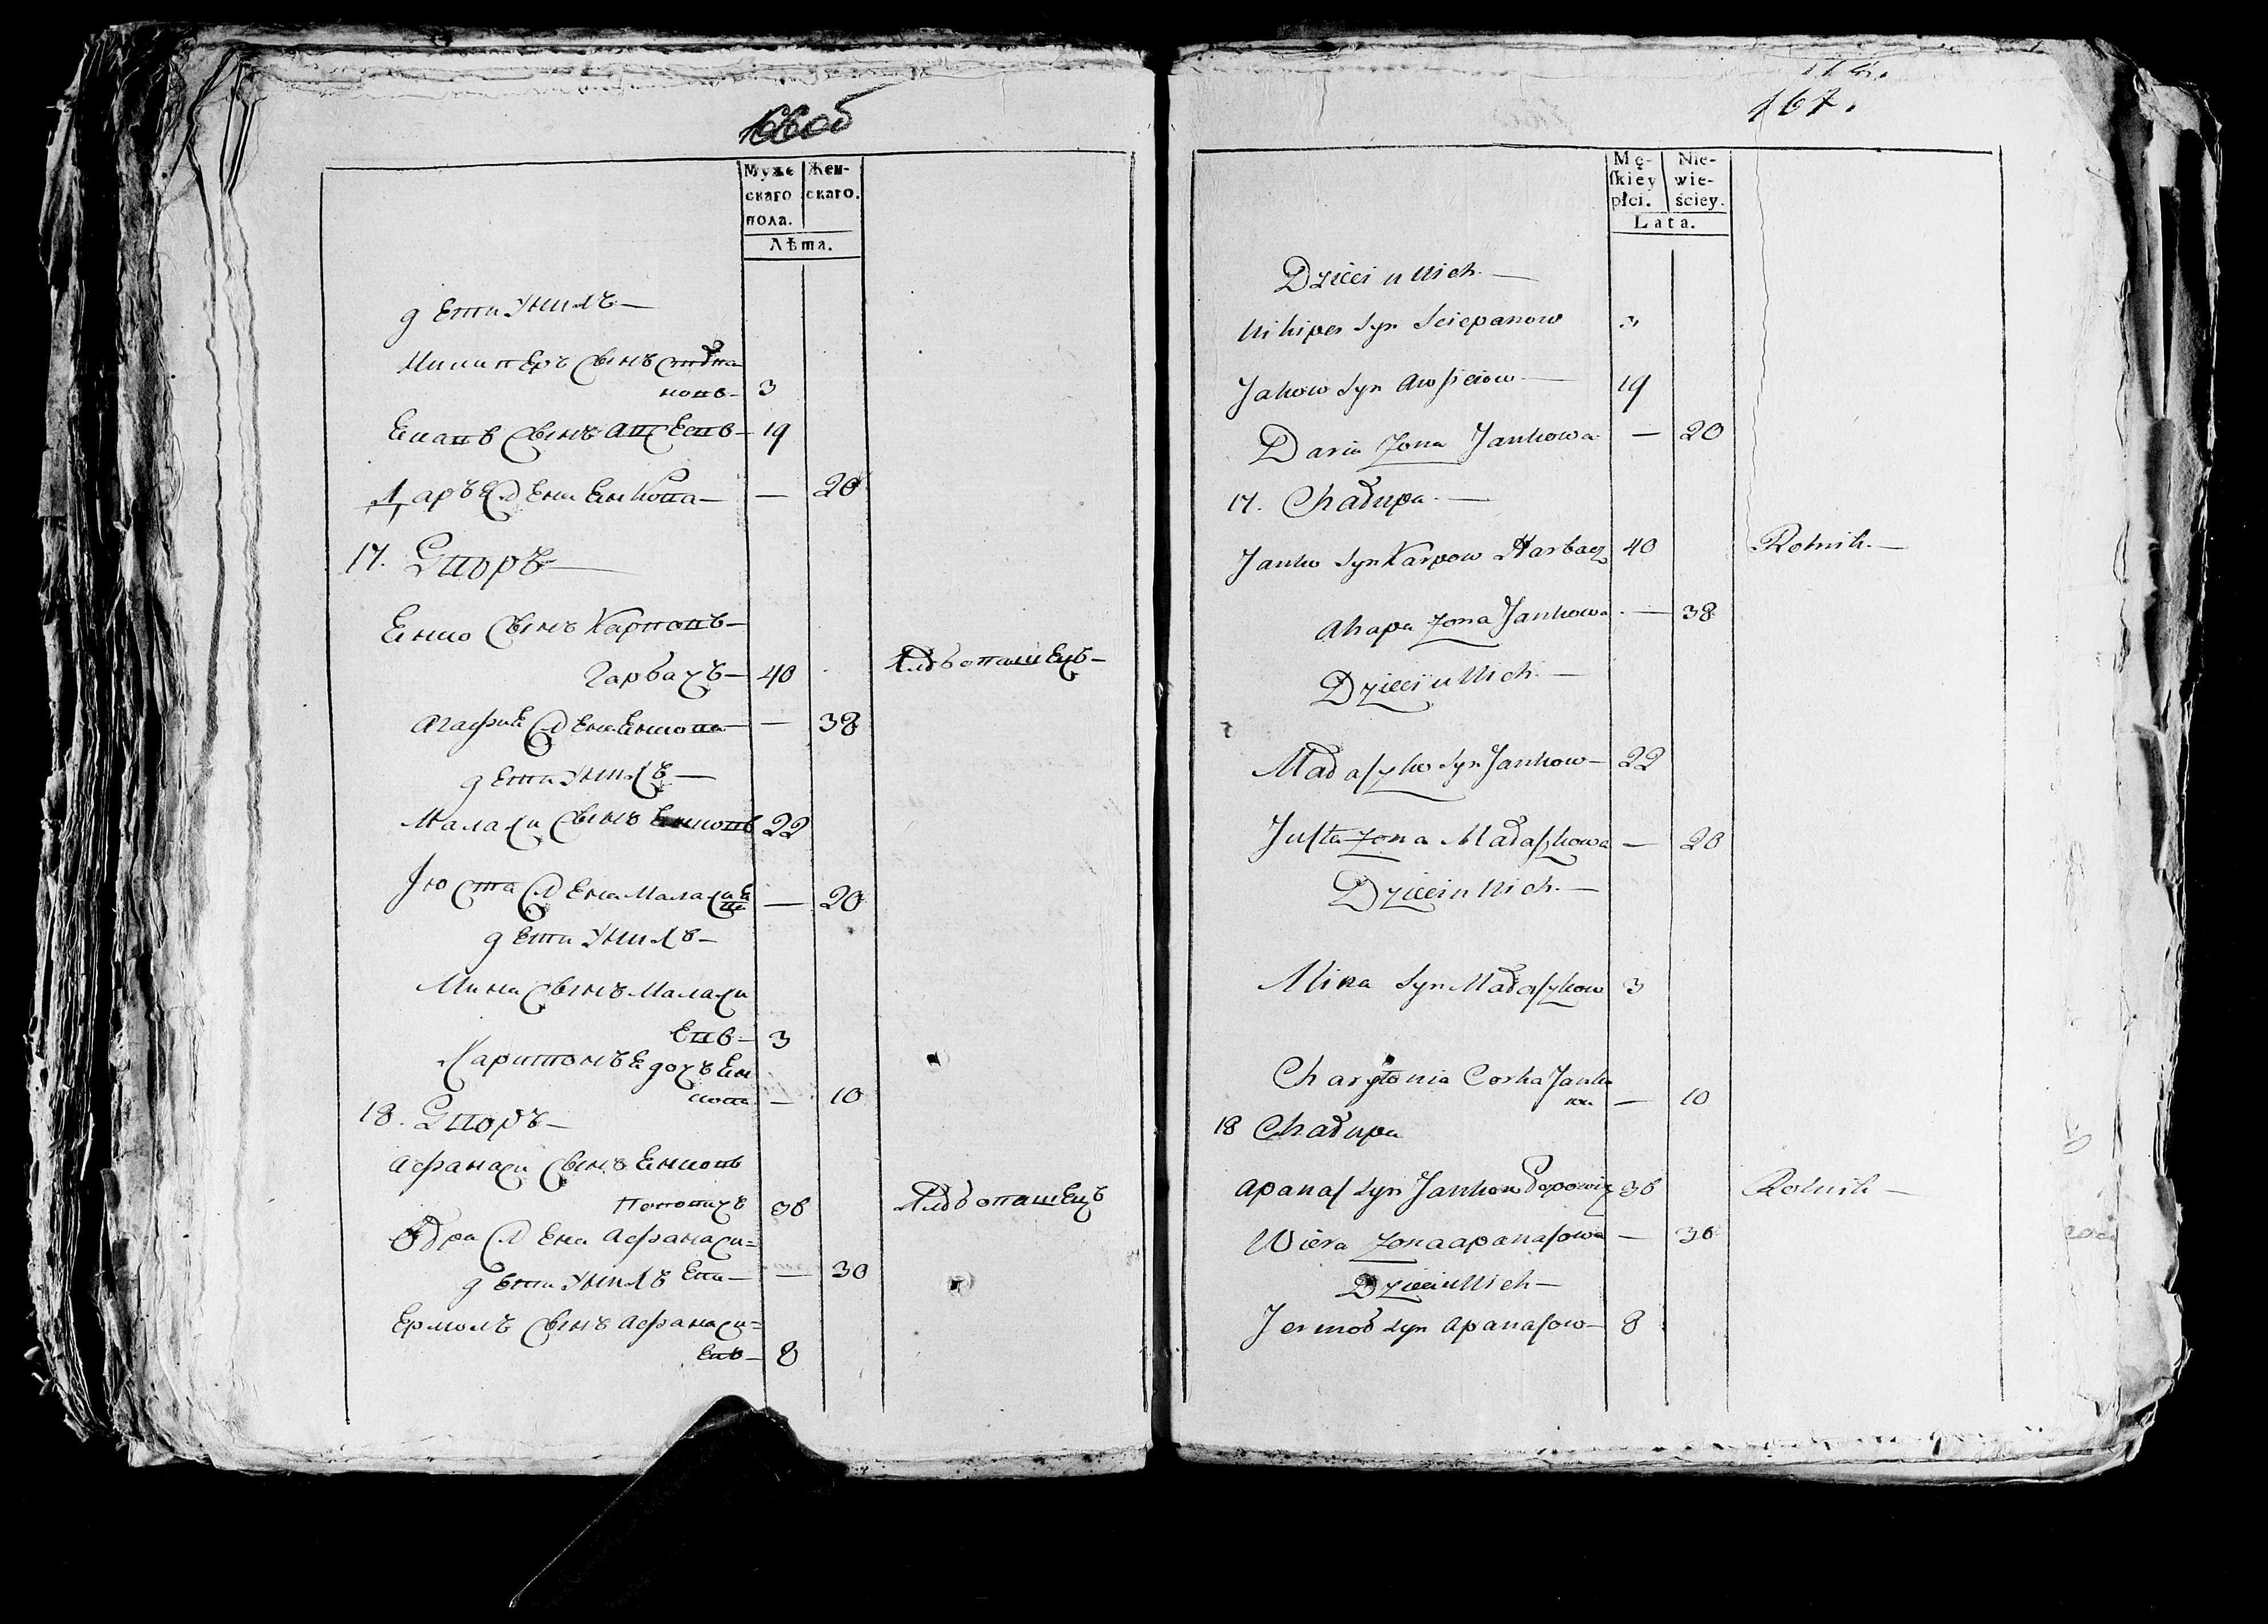 166об
Муже
скаго
пола.
Жен-
скаго.
Лѣта.
дети унихъ—
Никиперъ сынъ Степа
новъ— 3
Ековъ сынъ Авсеевъ— 19
Даръе жена Енкова— — 20
17. Дворъ—
Енко сынъ Карповъ—
Гарбачъ— 40 Хлѣбопашецъ—
Агафие жена Енкова— — 38
дети унихъ—
Малахи сынъ Енковъ 22
Юста жена Малахие
ва — 20
дети унихъ—
Мина сынъ Малахи
евъ— 3
Харитонъе дочъ Ен
кова — 10
18. Дворъ—
Афанаси сынъ Енковъ
Поповичъ 36 Хлѣбопашецъ
жена Афанаси=
дети унихъ ева— — 30
Ермолъ сынъ Афанаси=
евъ— 8
167.
Mę-
ſkiey
płci.
Nie-
wie-
ściey.
Lata.
Dzieci u Nich.—
Nikiper Syn Sciepanow 3
Jakow Syn Awſieiow— 19
Daria Zona Jankowa — 20
17. Chałupa.—
Janko Syn Karpow Harbacz 40 Rolnik.—
Ahapa Zona Jankowa — 38
Dzieci u Nich.—
Małaſzko Syn Jankow— 22
Juſta Zona Małaſzkowa — 20
Dzieci u Nich.—
Mina Syn Małaſzkow 3
Charytonia Corka Janko
wa — 10
18 Chałupa
Apanaſ Syn Jankow Popowicz 36 Rolnik—
Wiera Zona Apanaſowa — 30
Dzieci u Nich—
Jermoł Syn Apanaſow— 8